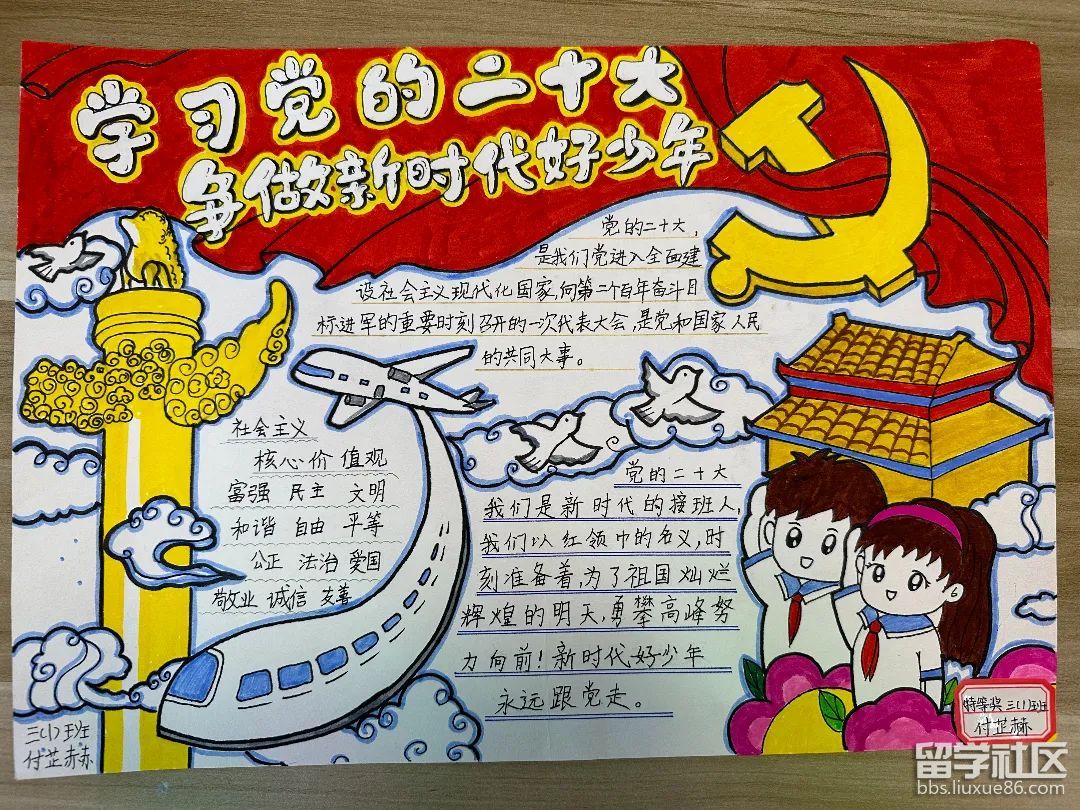 学习党的二十大
争做新时代好少年
党的二十大,
是我们党进入全面建
设社会主义现代化国家,向第二个百年奋斗目
标进军的重要时刻召开的一次代表大会,是党和国家人民
的共同大事。
社会主义
核心价值观
富强 民主 文明
和谐 自由 平等
公正 法治 爱国
敬业 诚信 友善
党的二十大
我们是新时代的接班人,
我们以红领巾的名义,时
刻准备着,为了祖国灿烂
辉煌的明天,勇攀高峰努
力向前!新时代好少年
永远跟党走。
三(1)班
付芷赫
特等奖 三(1)班
付芷赫
留学社区
bbs.liuxue86.com